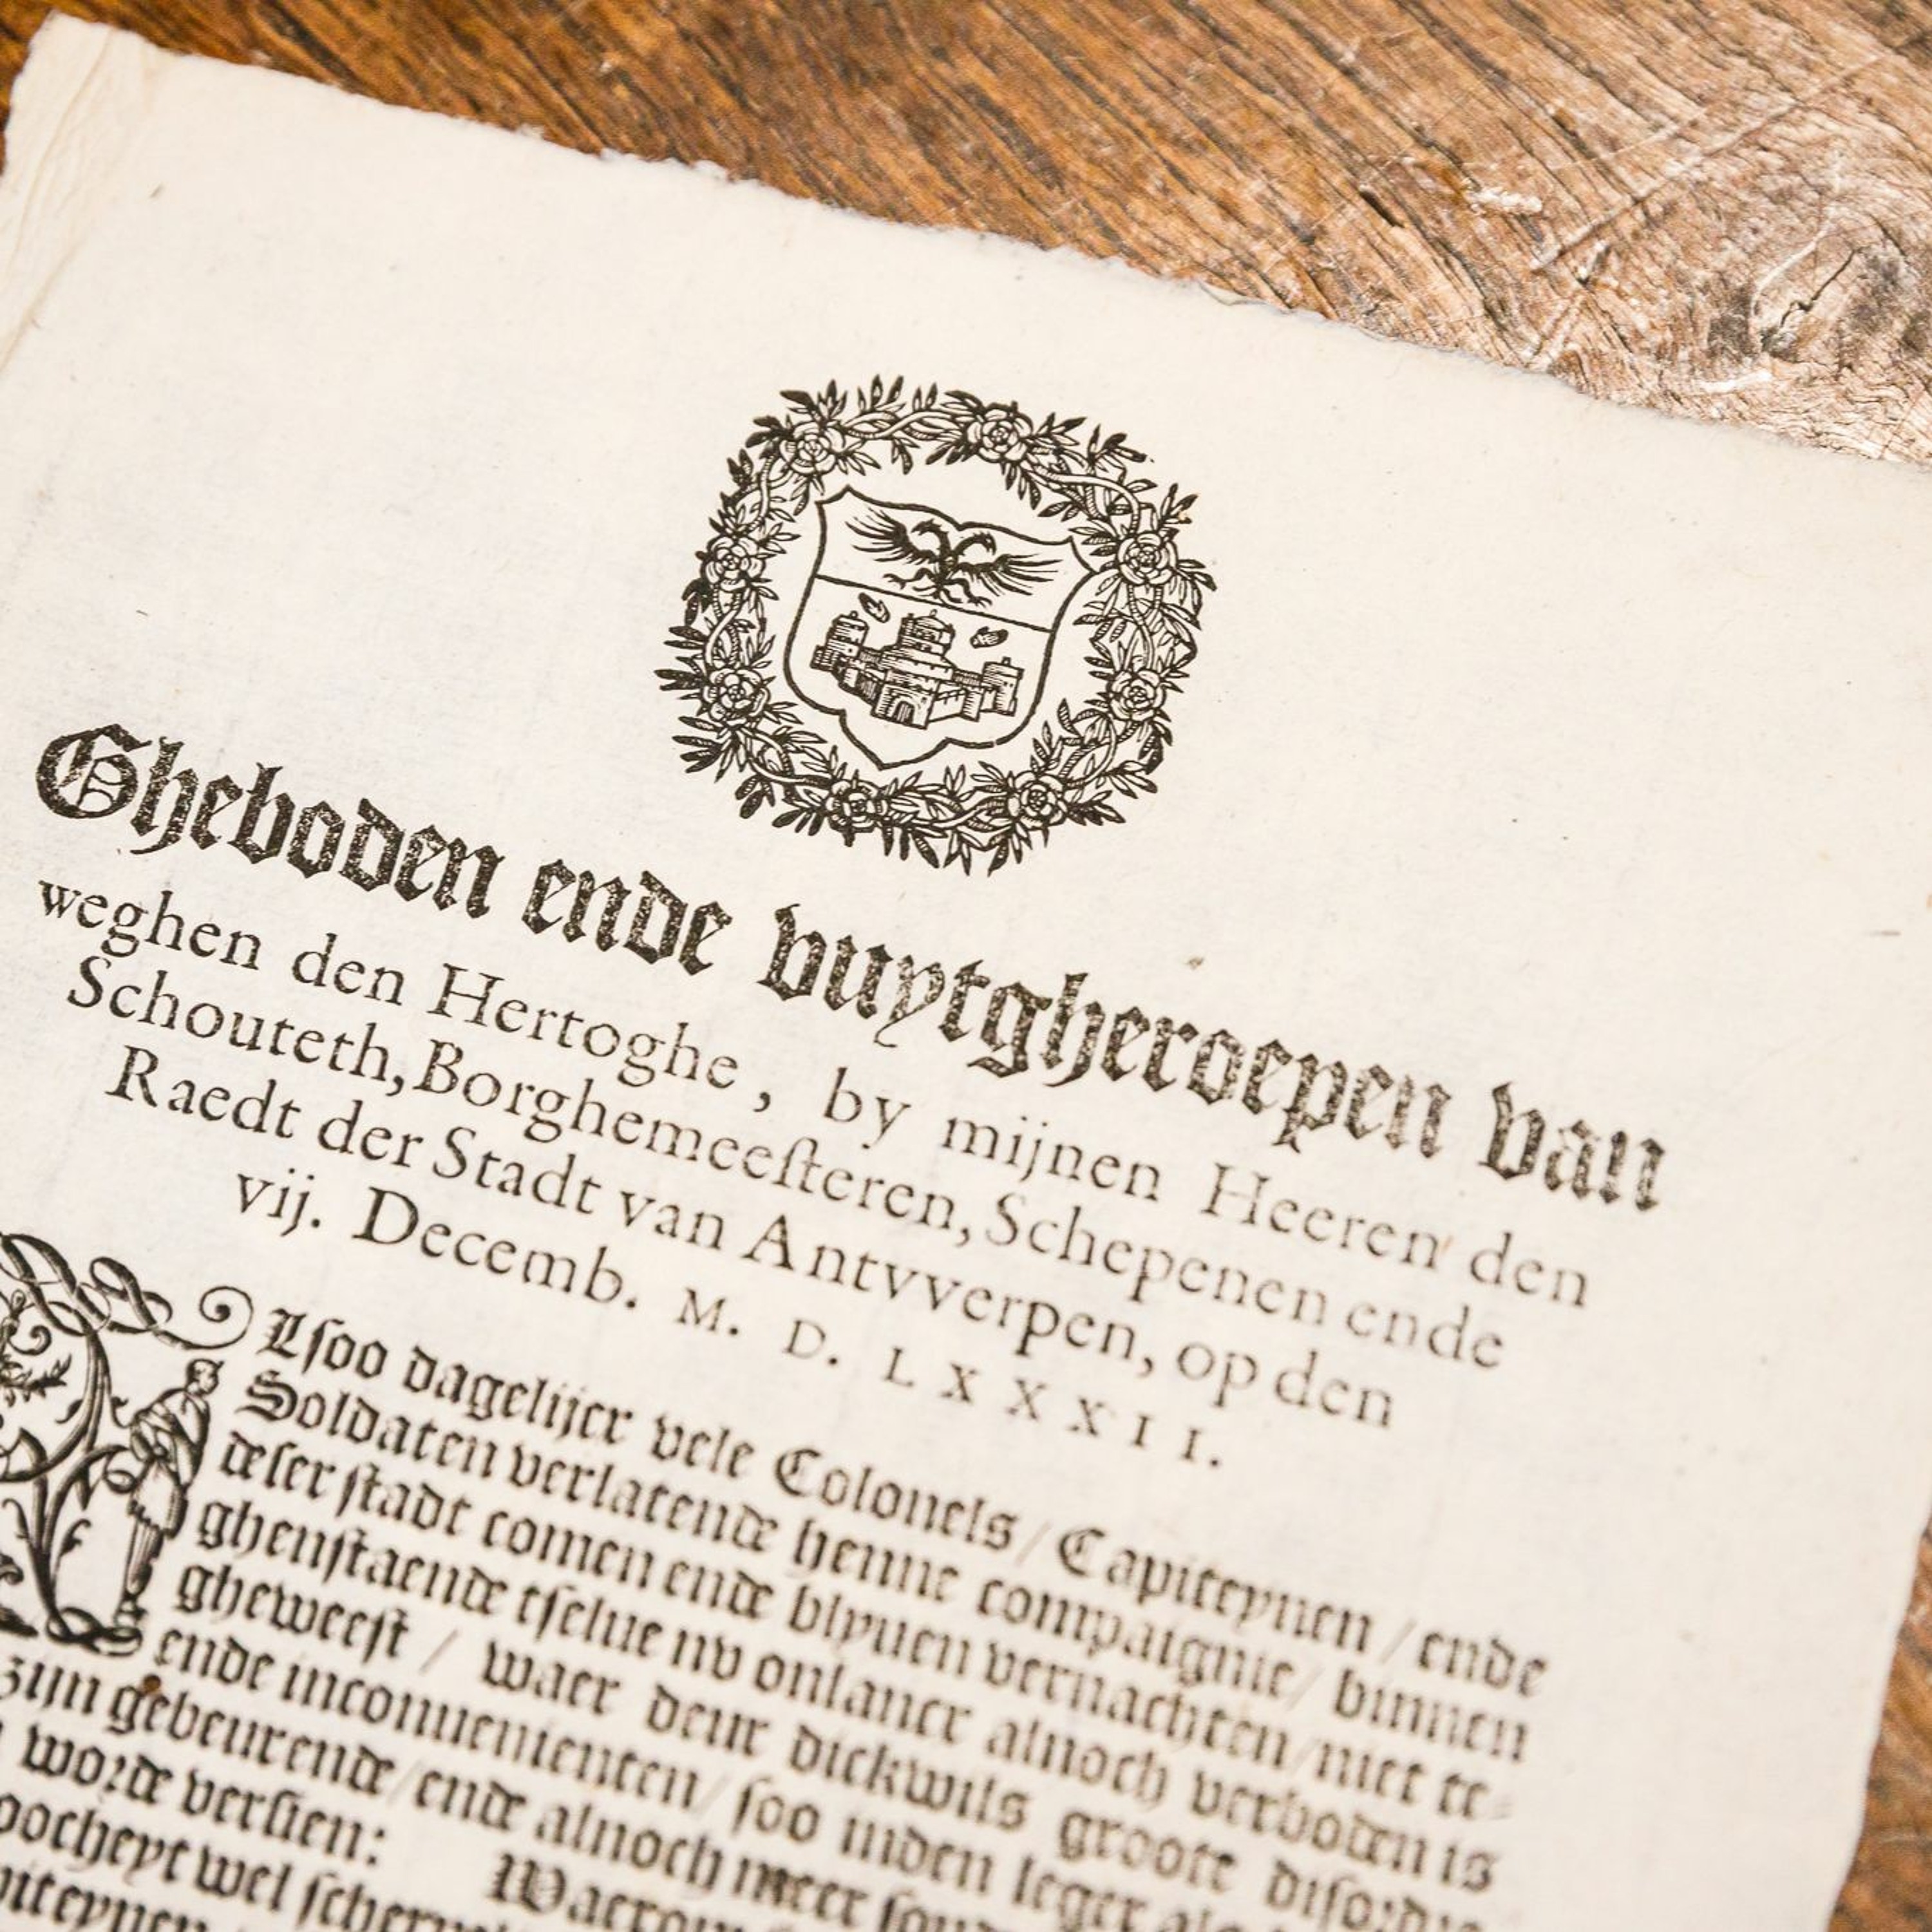 Gheboden ende vuytgheroepen van
weghen den Hertoghe, by mijnen Heeren den
Schouteth, Borghemeeſteren, Schepenen ende
Raedt der Stadt van Antvverpen, op den
vij. Decemb. M. D. L X X X I I.
Lſoo dagelijcx vele Colonels / Capiteynen / ende
Soldaten verlatende henne compaignie / binnen
deſer ſtadt comen ende blyuen vernachten / niet te-
ghenſtaende tſelue nv onlancx alnoch verboden is
gheweeſt / waer deur dickwils groote diſordre
ende inconuenienten / ſoo inden leger als
zijn gebeurende / ende alnoch meer
worde verſien: Waerom
oocheyt wel
piteynen